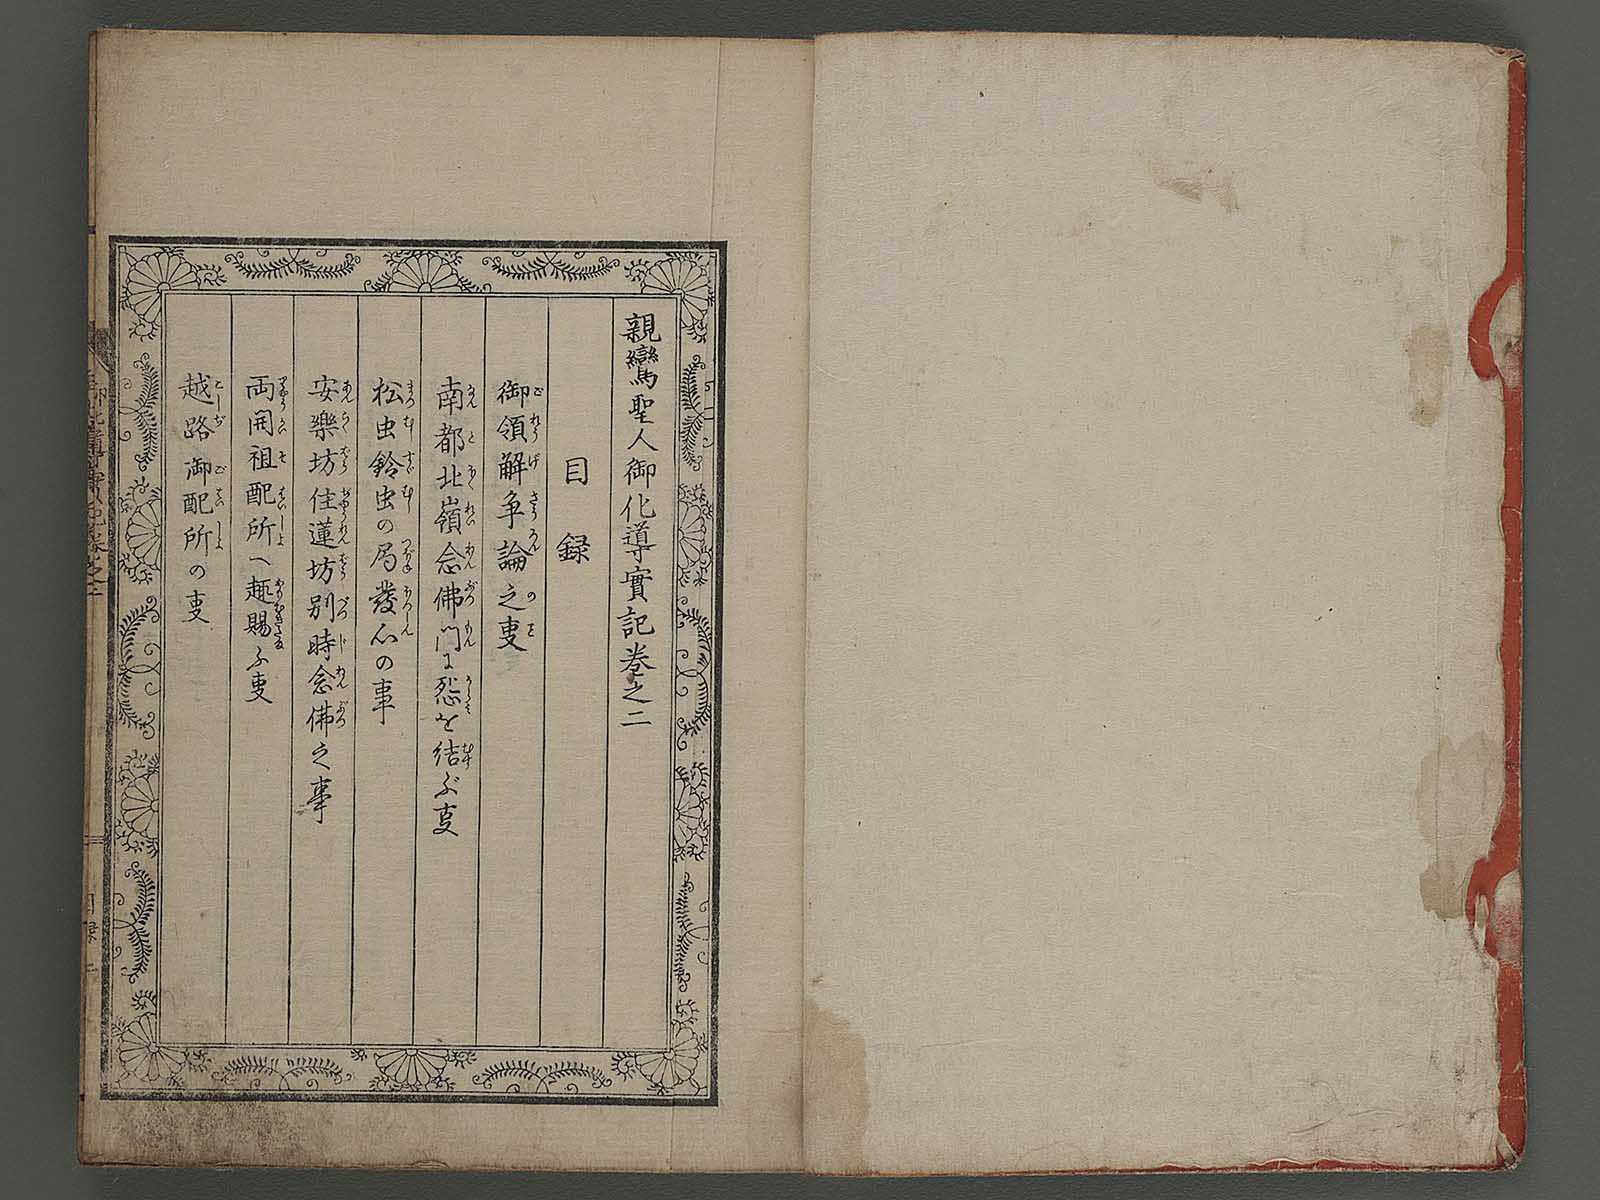 親鸞聖人御化導實記巻之二
目録
御領解争論之叓
南都北嶺念佛門に怨を結ぶ叓
松虫鈴虫の局發心の事
安樂坊住蓮坊別時念佛之事
両開祖配所へ趣賜ふ叓
越路御配所の叓